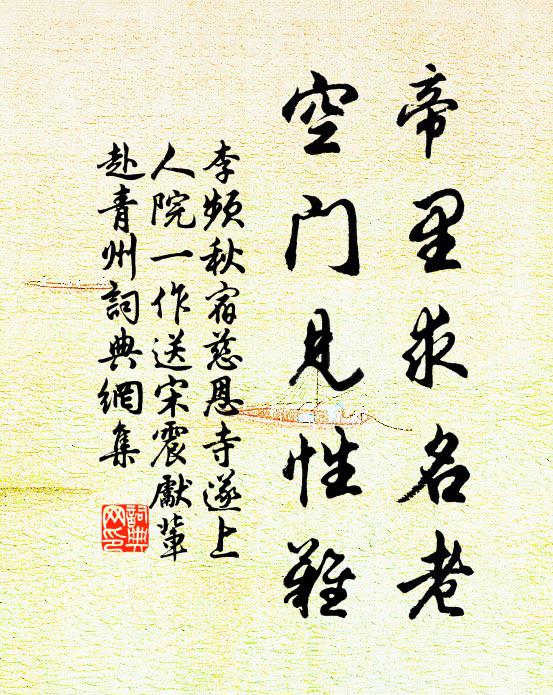 帝里求名老
空门见性難
李频秋宿慈恩寺遂上
人院一作送宋震獻輩
赴青州詞典網集
詞典網印